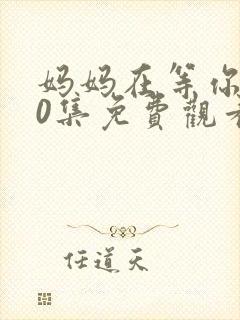 妈妈在等你
0集免費觀看
任道天